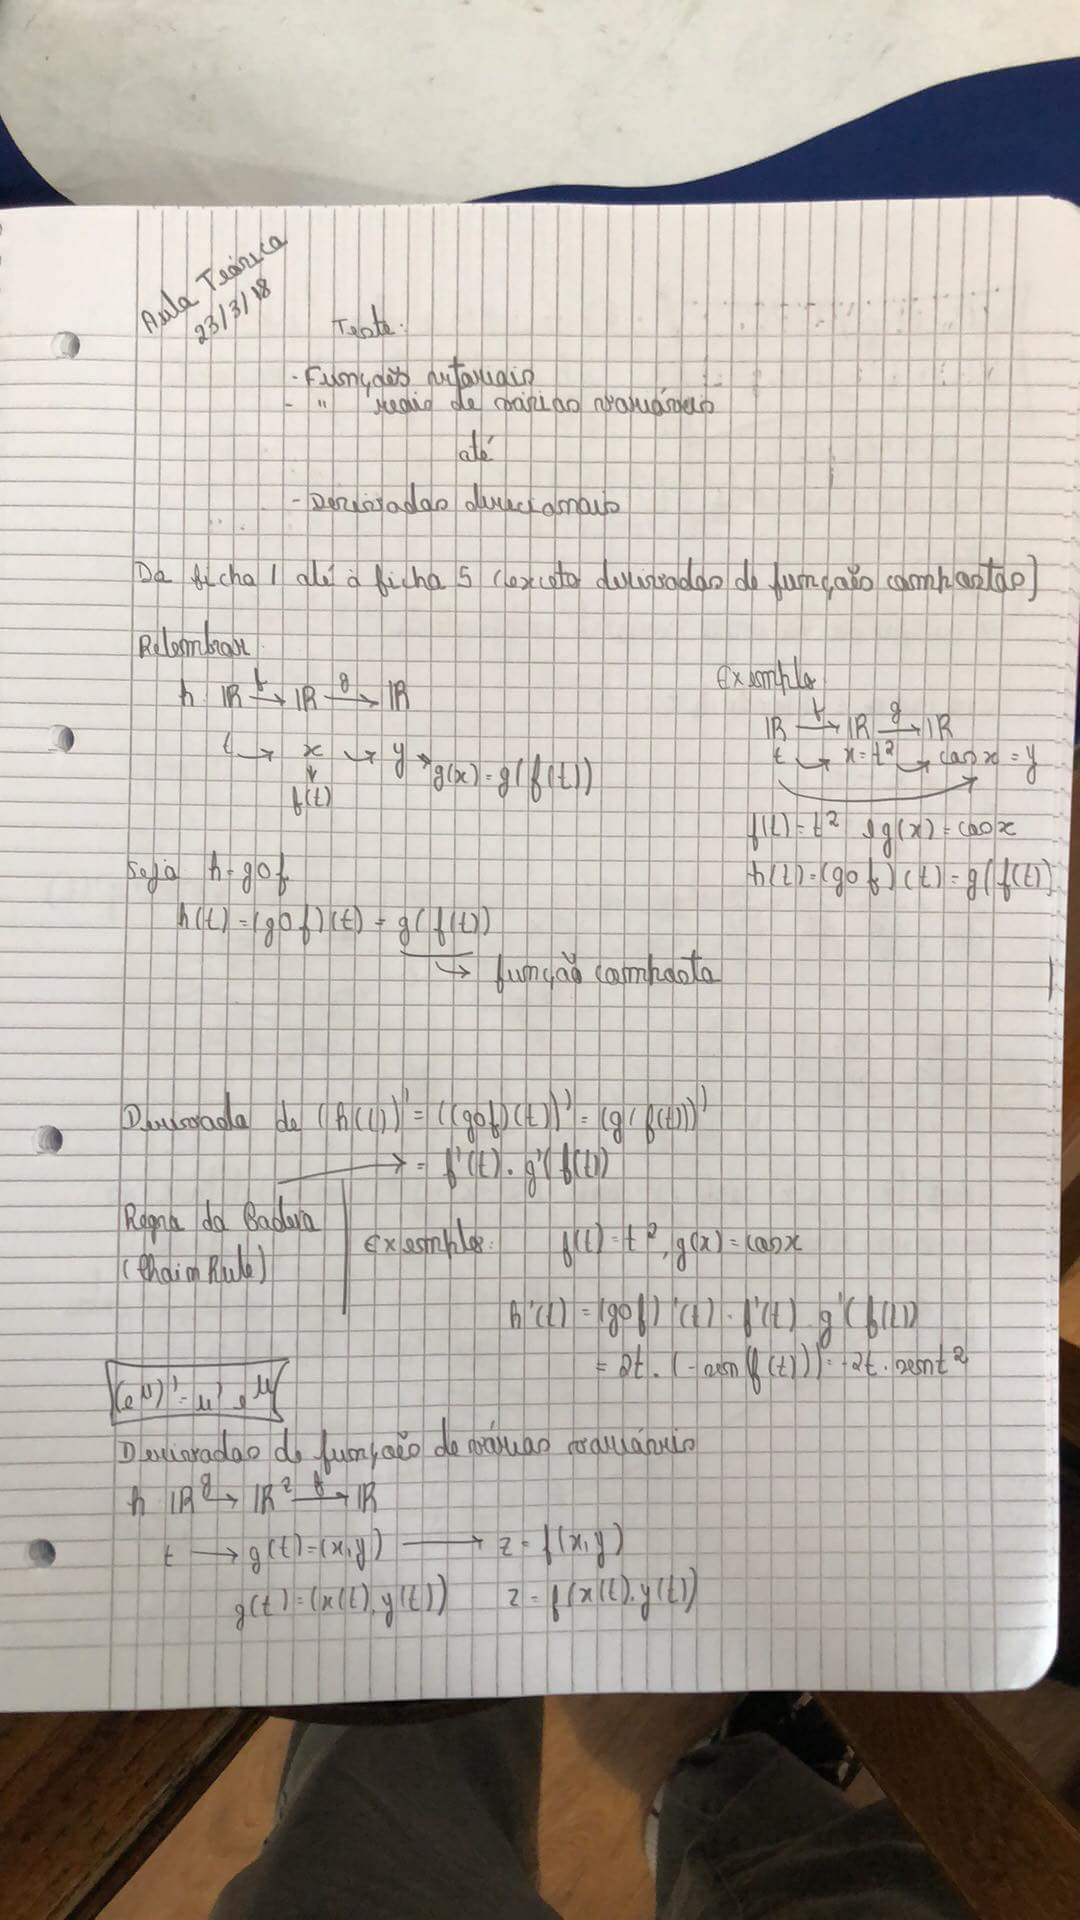 Aula Teórica
23/3/18
Teste:
- Funções vetoriais
- " reais de várias variáveis
até
- Derivadas direcionais
Da ficha 1 até à ficha 5 (exceto derivadas de função compostas)
Relembrar
h ℝ →f ℝ →g ℝ
t → x → y → g(x) = g(f(t))
f(t)
Exemplo
ℝ →f ℝ →g ℝ
t → x = t² → cos x = y
f(t) = t² e g(x) = cos x
h(t) = (g∘f)(t) = g(f(t))
Seja h = g∘f
h(t) = (g∘f)(t) = g(f(t))
→ função composta
Derivada de (h(t))' = ((g∘f)(t))' = (g(f(t)))'
= f'(t) · g'(f(t))
Regra da Cadeia
(Chain Rule)
Exemplo: f(t) = t², g(x) = cos x
h'(t) = (g∘f)'(t) = f'(t) · g'(f(t))
= 2t · (-sen(f(t))) = -2t · sen t²
(e^u)' = u' e^u
Derivadas de função de várias variáveis
h ℝ →g ℝ² →f ℝ
t → g(t) = (x,y) → z = f(x,y)
g(t) = (x(t), y(t)) z = f(x(t), y(t))